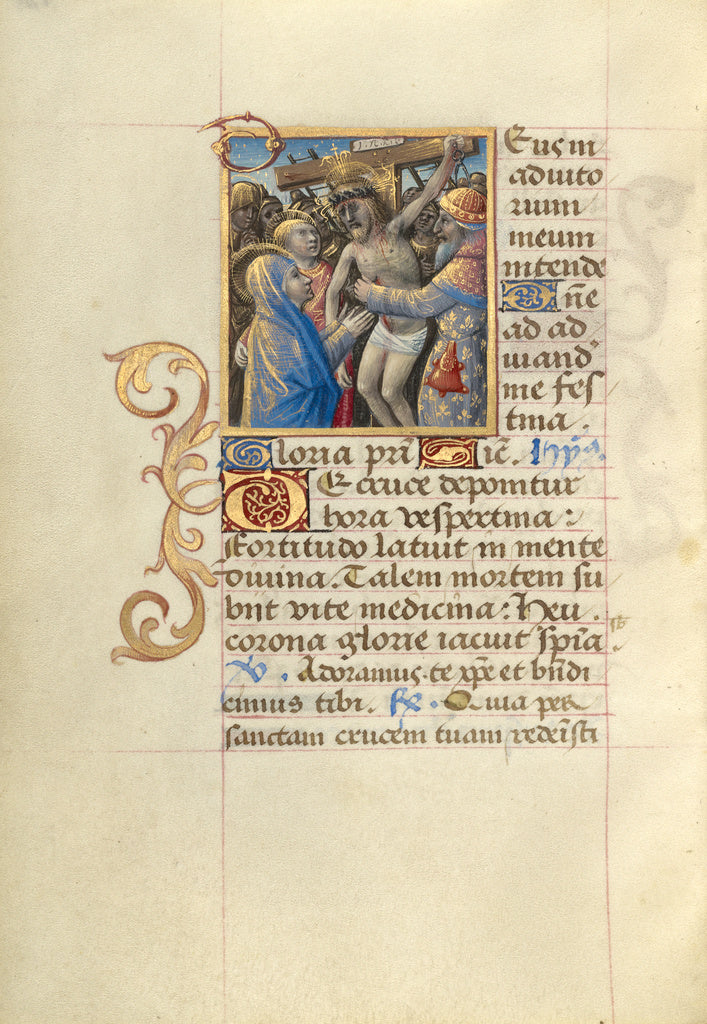 I N R I
Deus in
adiuto
rium
meum
intende
Dn̄e
ad ad
iuuand'
me fes
tina .
Gloria pr̄i Sic̄. hyṁ.
De cruce deponitur
hora vespertina :
Fortitudo latuit in mente
diuina. Talem mortem su
biit vite medicina : Heu .
corona glorie iacuit sp̄ia
v̄ . Adoramus te xp̄e et bn̄di
cimus tibi . R̄ . Quia per
sanctam crucem tuam redem̄sti